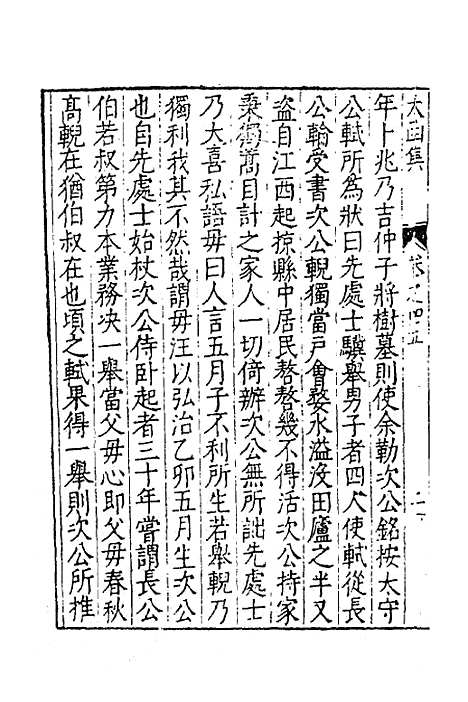 太函集
卷之四五
年卜兆乃吉仲子將樹墓則使余勒次公銘按太守
公軾所為狀曰先處士驥舉男子者四人使軾從長
公翰受書次公輗獨當戶會婺水溢沒田廬之半又
盜自江西起掠縣中居民嗸嗸幾不得活次公持家
秉獨蒿目計之家人一切倚辦次公無所詘先處士
乃大喜私語毋曰人言五月子不利所生若舉輗乃
獨利我其不然哉謂毋汪以弘治乙卯五月生次公
也自先處士始杖次公侍卧起者三十年嘗謂長公
伯若叔第力本業務決一舉當父毋心即父毋春秋
高輗在猶伯叔在也頃之軾果得一舉則次公所推